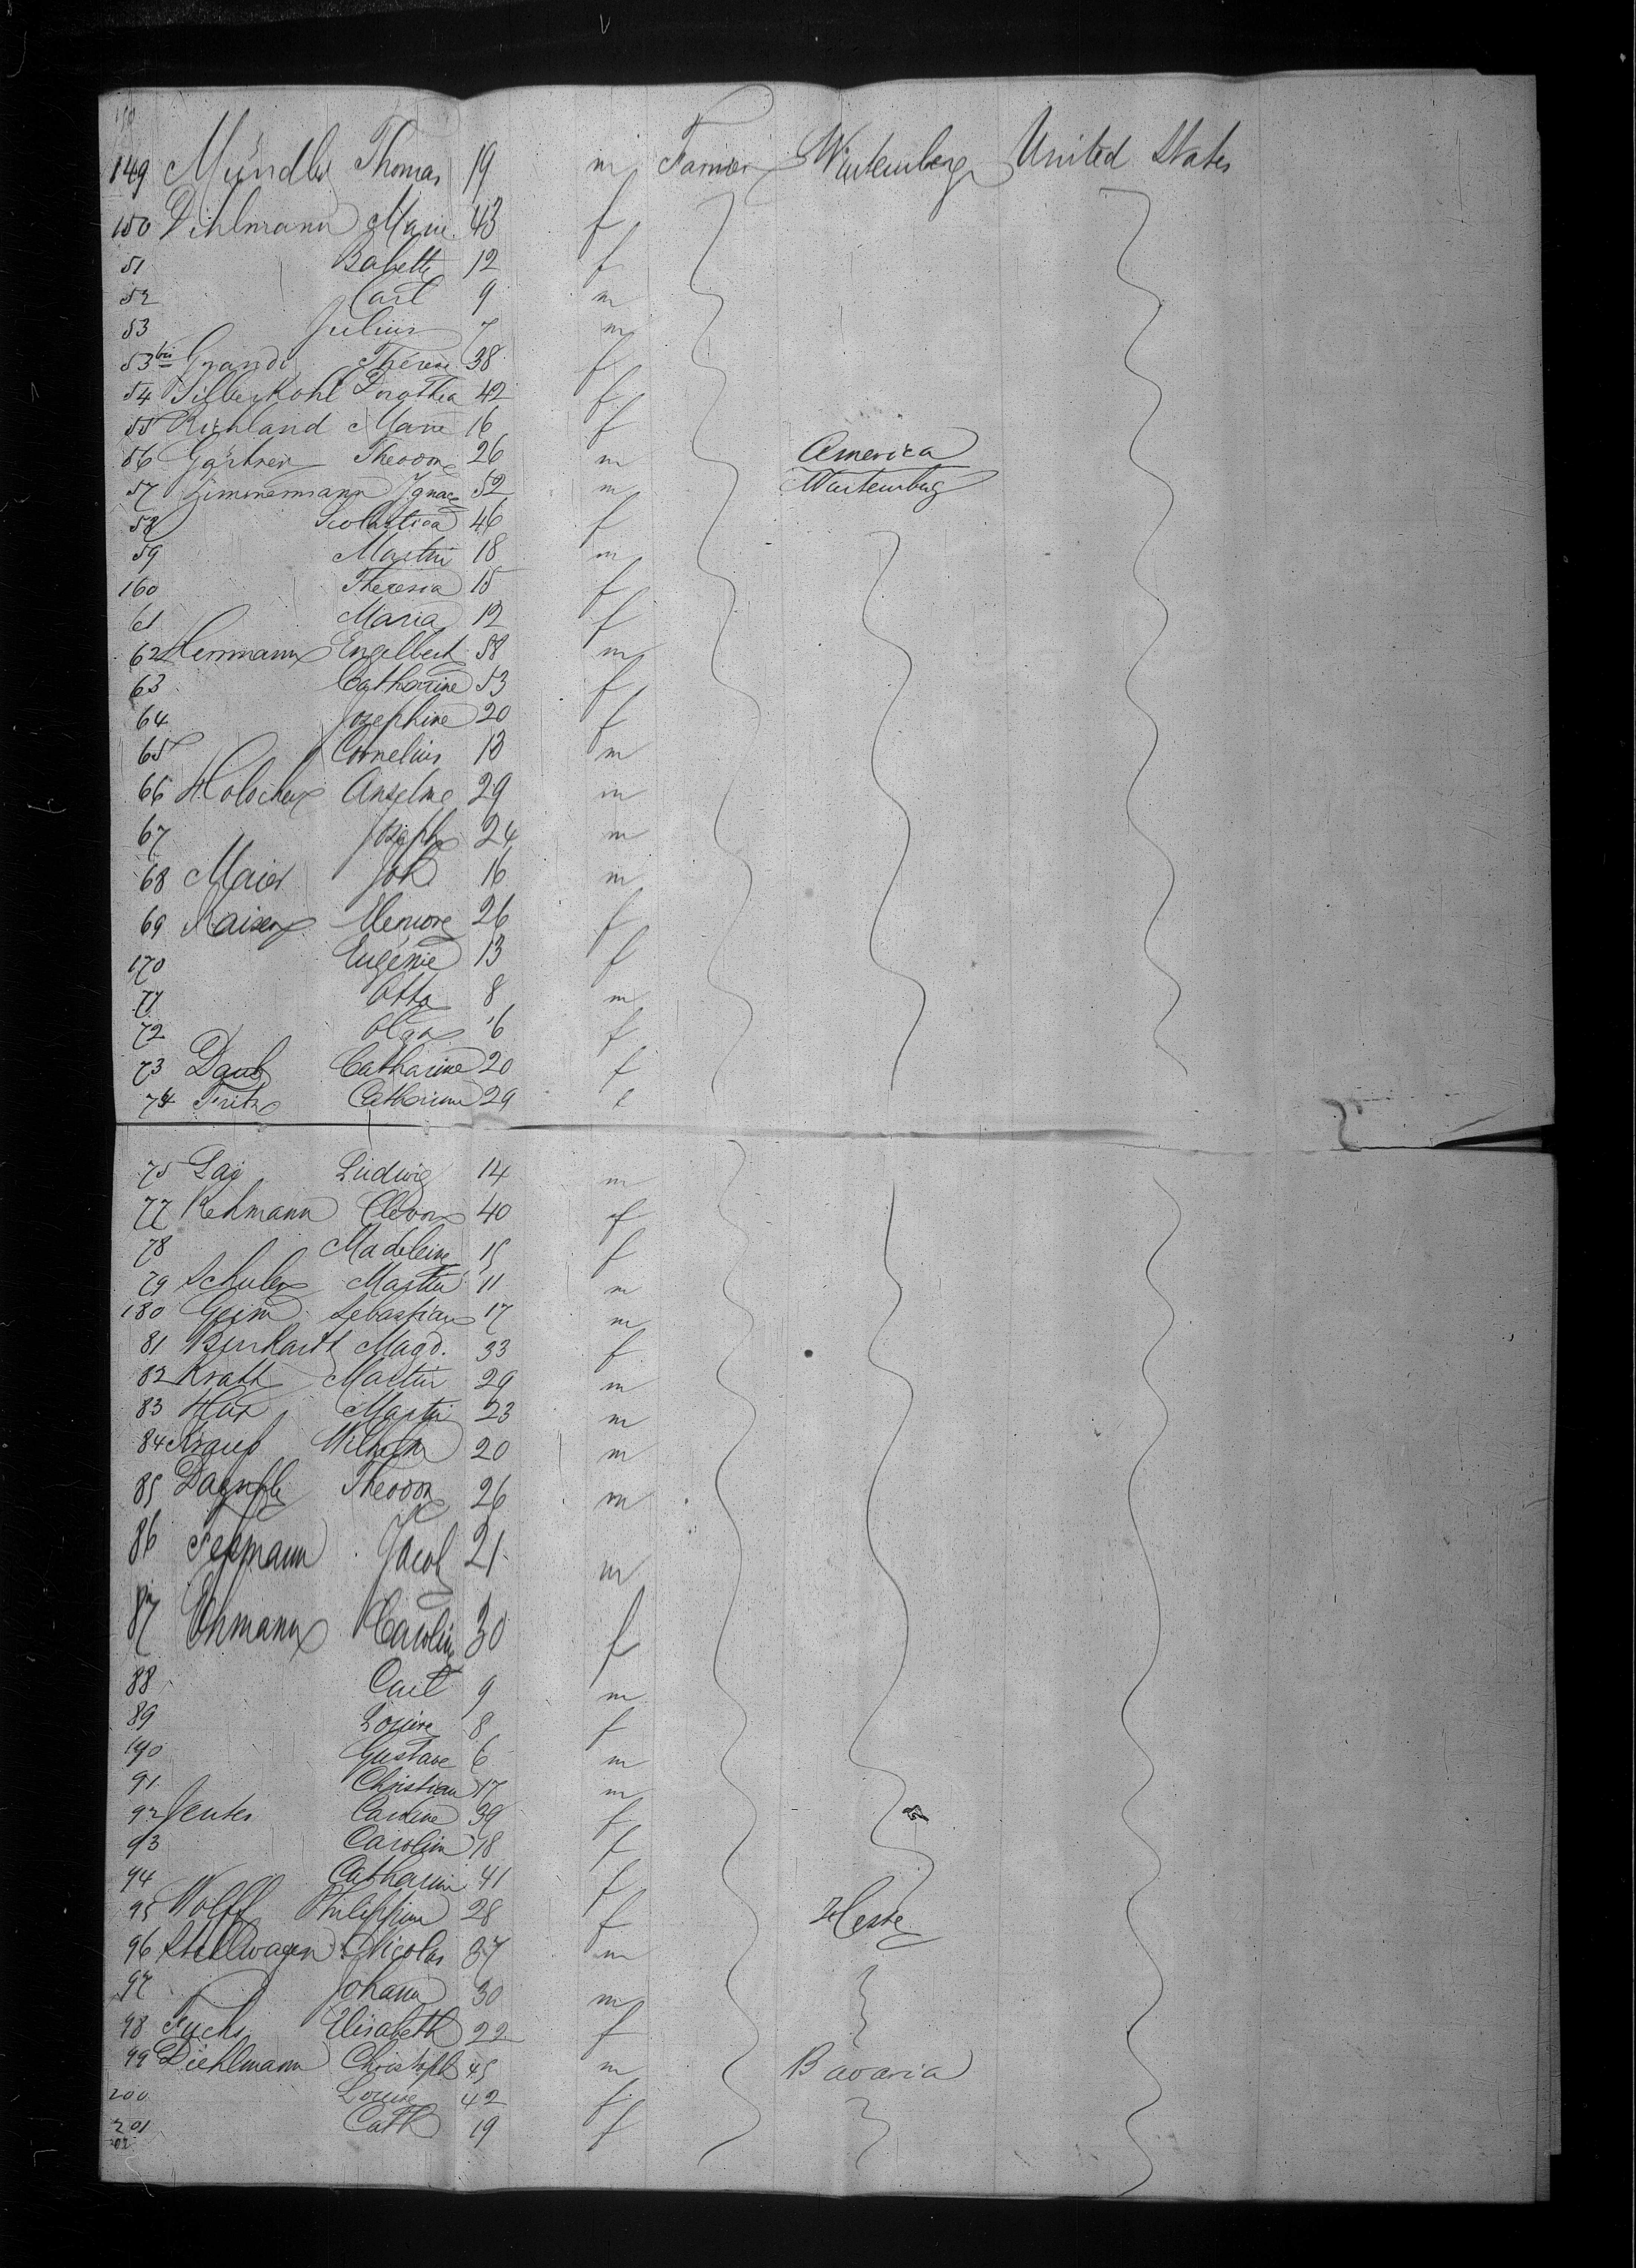 149 Mündler Thomas 19 m Farmer Wurtemberg United States
150 Dihlmann Marie 43 f
51 Babette 12 f
52 Carl 9 m
53 Julius 7 m
53 bis Grande Thérèse 38 f
54 Silberkohl Dorothea 42 f
55 Richland Marie 16 f
56 Gärtner Theodor 26 m America
57 Zimmermann Ignace 52 m Wurtemberg
58 Scolastica 46 f
59 Martin 18 m
160 Theresia 15 f
61 Maria 12 f
62 Herrmann Engelbert 58 m
63 Catharine 53 f
64 Josephine 20 f
65 Cornelius 13 m
66 Holocher Anselme 29 m
67 Joseph 24 m
68 Maier Joh 16 m
69 Kaiser 26 f
170 Eugénie 13 f
71 Otto 8 m
72 6 f
73 Daub Catharine 20 f
74 Fritz Catharine 29 f
75 Ludwig 14 m
77 Rehmann 40 f
78 Madeleine 15 f
79 Schuler Martin 11 m
180 Geim Sebastian 17 m
81 Burkardt Magd. 33 f
82 Kratt Martin 29 m
83 Hux Martin 23 m
84 Wilhelm 20 m
85 Theodor 26 m
86 Jacob 21 m
87 Ehmann Caroline 30 f
88 Carl 9 m
89 Louise 8 f
190 Gustave 6 m
91 Christian 17 m
92 Jenter Caroline 39 f
93 Carolin 18 f
94 Catharine 41 f
95 Wolff Philippine 28 f Hesse
96 Stellwagen Nicolas 37 m
97 Johann 30 m
98 Fuchs Elisabeth 22 f
99 Diehlmann Christoph 45 m Bavaria
200 Louise 42 f
201 Cath 19 f
202